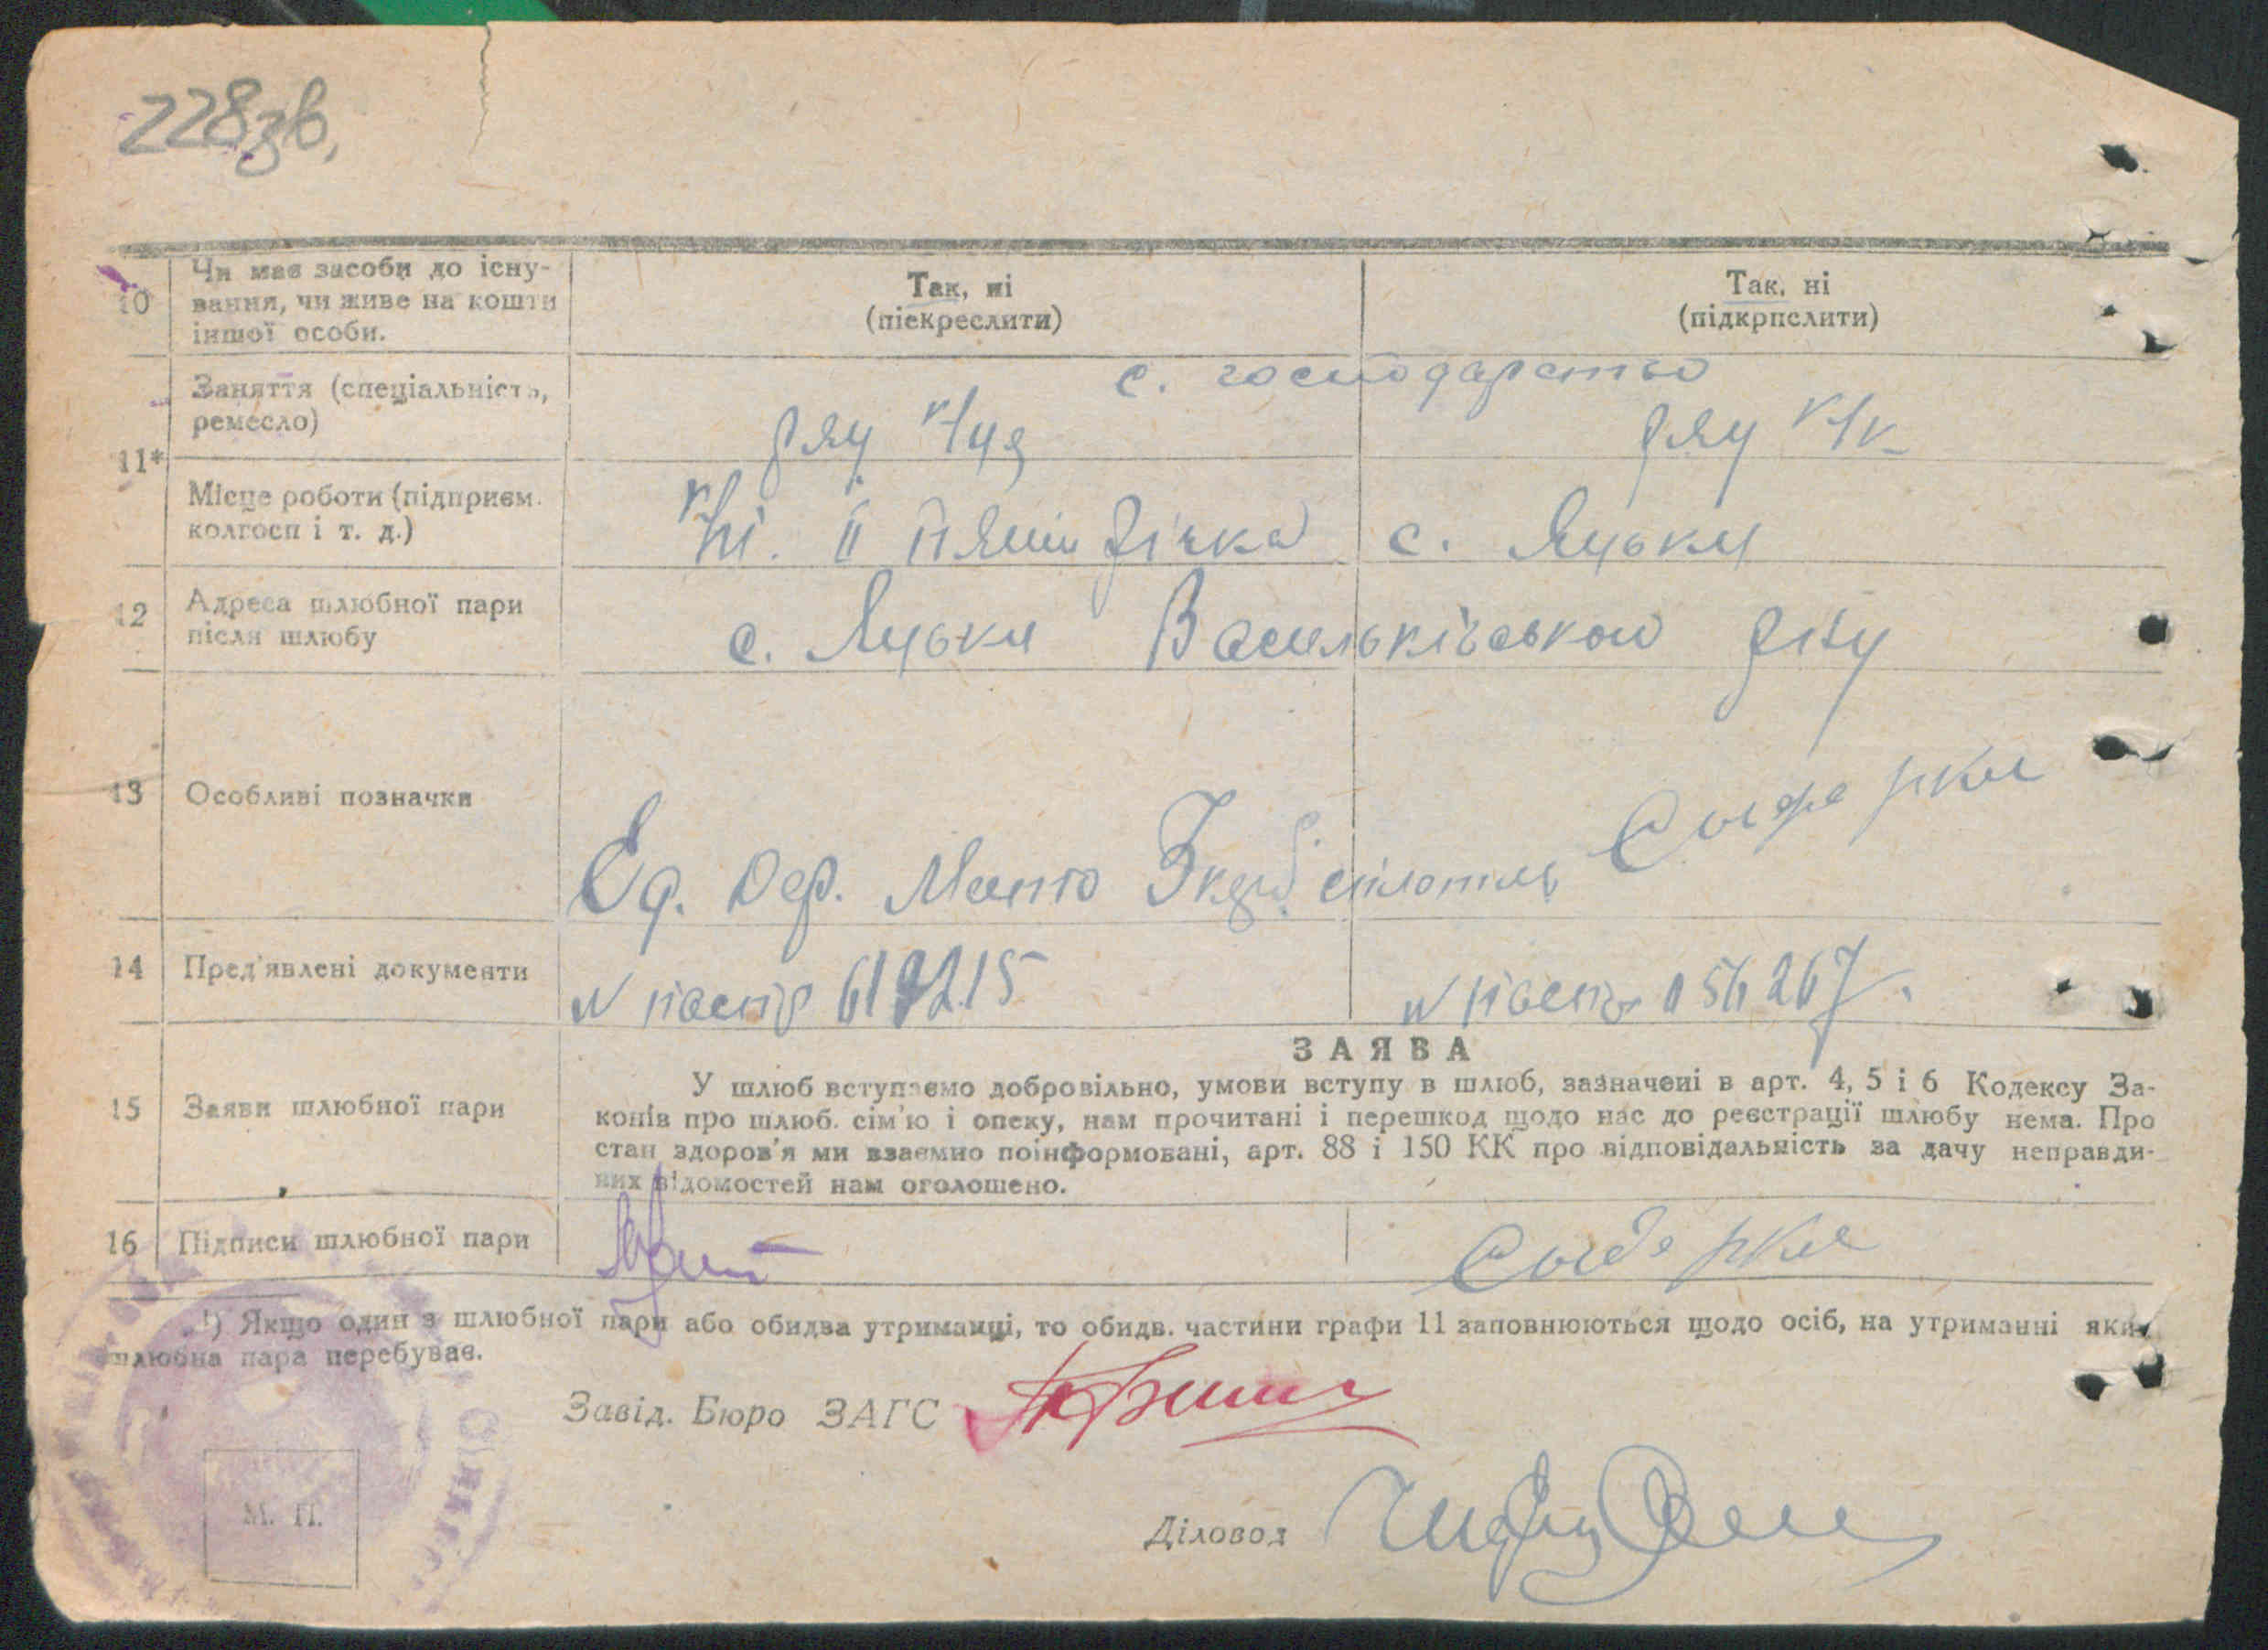 228зв.
10
Чи має засоби до існу-
вання, чи живе на кошти
іншої особи.
Так, ні
(піекреслити)
Так, ні
(підкрпслити)
с. господарство
11*
Заняття (спеціальність,
ремесло)
ряд
ряд к/к
Місце роботи (підприєм.
колгосп і т. д.)
ім. ІІ Пятирічка
с. Яцьки
12
Адреса шлюбної пари
після шлюбу
с. Яцьки Васильківськой р-ну
13
Особливі позначки
14
Пред'явлені документи
№ паспор 619215
№ паспор 056267.
ЗАЯВА
15
Заяви шлюбної пари
У шлюб вступаємо добровільно, умови вступу в шлюб, зазначені в арт. 4, 5 і 6 Кодексу За-
конів про шлюб. сім'ю і опеку, нам прочитані і перешкод щодо нас до реєстрації шлюбу нема. Про
стан здоров'я ми взаємно поінформовані, арт. 88 і 150 КК про відповідальність за дачу неправди-
вих відомостей нам оголошено.
16
Підписи шлюбної пари
¹) Якщо один з шлюбної пари або обидва утриманці, то обидв. частини графи 11 заповнюються щодо осіб, на утриманні яких
шлюбна пара перебуває.
Завід. Бюро ЗАГС
М. П.
Діловод